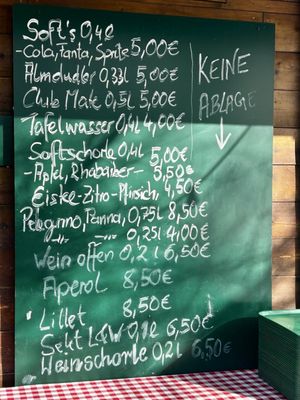 Soft's 0,4l
-Cola, Fanta, Sprite 5,00€
Almdudler 0,33l 5,00€
Club Mate 0,5l 5,00€
Tafelwasser 0,4l 4,00€
Saftschorle 0,4l 5,00€
-Apfel, Rhabarber- 5,50€
Eistee-Zitro-Pfirsich, 4,50€
Pelegrino, Panna, 0,75l 8,50€
-"- -"- 0,25l 4,00€
Wein offen 0,2l 6,50€
Aperol 8,50€
Lillet 8,50€
Sekt L&W 0,1l 6,50€
Weinschorle 0,2l 6,50€
KEINE
ABLAGE